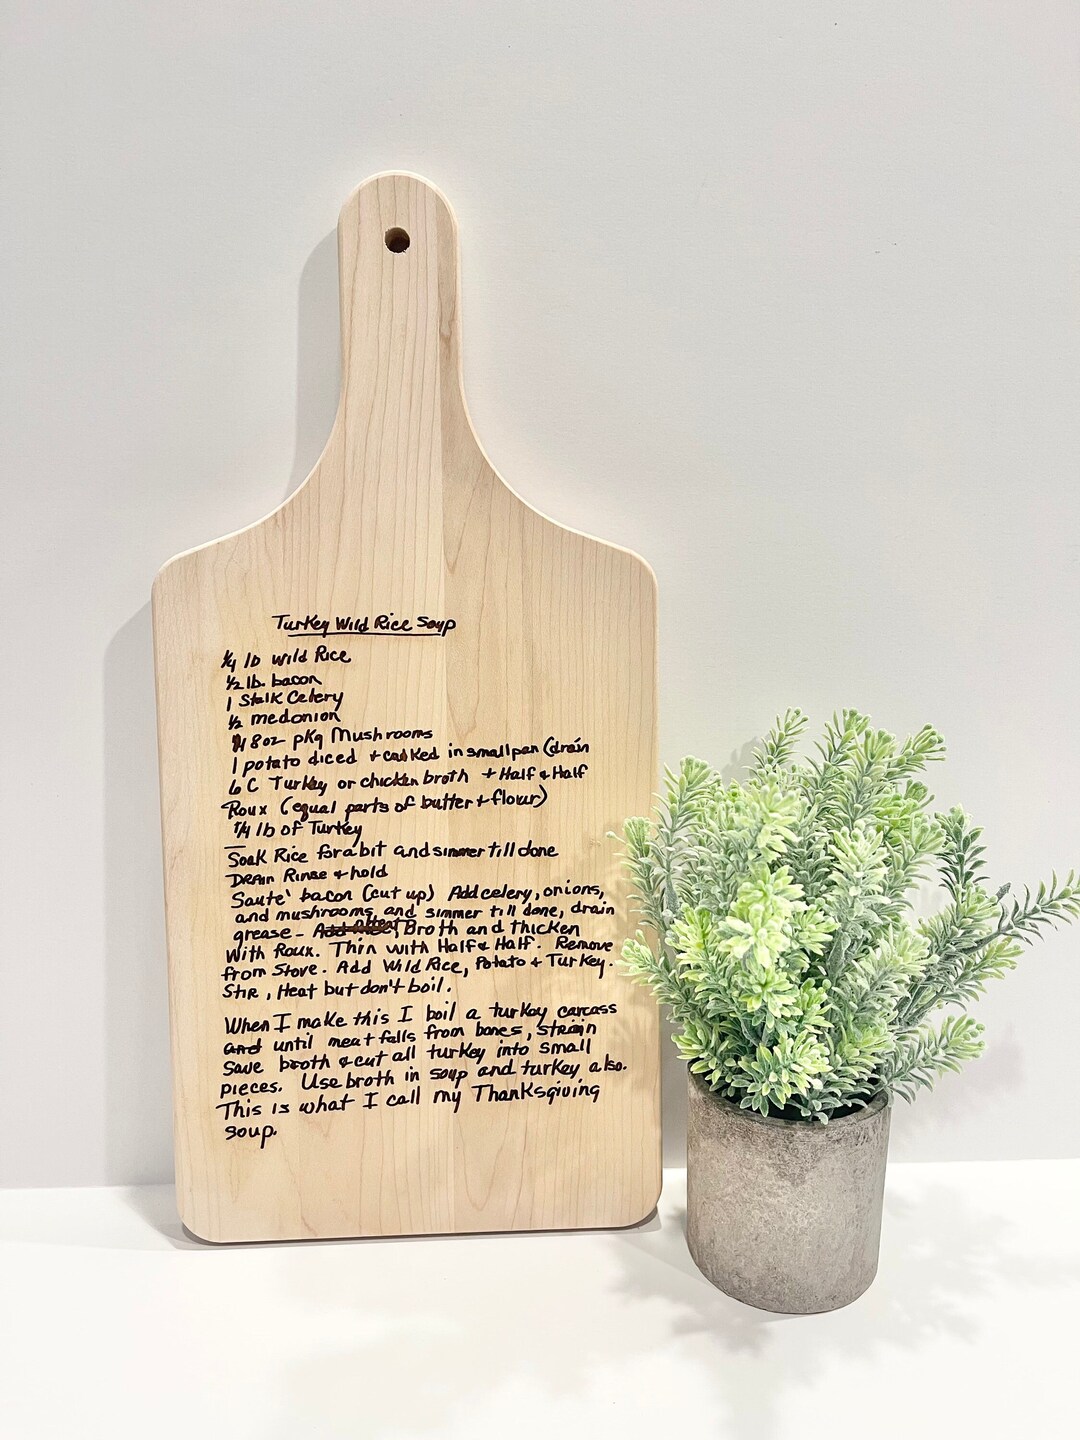 Turkey Wild Rice Soup
1/4 lb wild Rice
1/2 lb. bacon
1 Stalk Celery
1/2 med onion
8oz pkg Mushrooms
1 potato diced + cooked in small pan (drain
6 C Turkey or chicken broth + Half & Half
Roux (equal parts of butter + flour)
1/4 lb of Turkey
Soak Rice for a bit and simmer till done
DRAIN Rinse + hold
Saute' bacon (cut up) Add celery, onions,
and mushrooms and simmer till done, drain
grease - Add Broth and thicken
With Roux. Thin with Half & Half. Remove
from Stove. Add Wild Rice, Potato + Turkey.
Stir, Heat but don't boil.
When I make this I boil a turkey carcass
and until meat falls from bones, strain
Save broth & cut all turkey into small
pieces. Use broth in soup and turkey also.
This is what I call my Thanksgiving
soup.